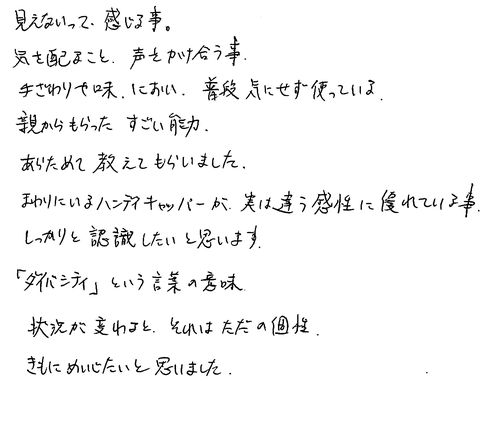 見えないって、感じる事。
気を配ること、声をかけ合う事、
手ざわりや味、におい、普段気にせず使っている、
親からもらった すごい能力、
あらためて教えてもらいました、
まわりにいるハンディキャッパーが、実は違う感性に優れている事、
しっかりと認識したいと思います、
「ダイバシティ」という言葉の意味
状況が変わると、それはただの個性、
きもにめいじたいと思いました、